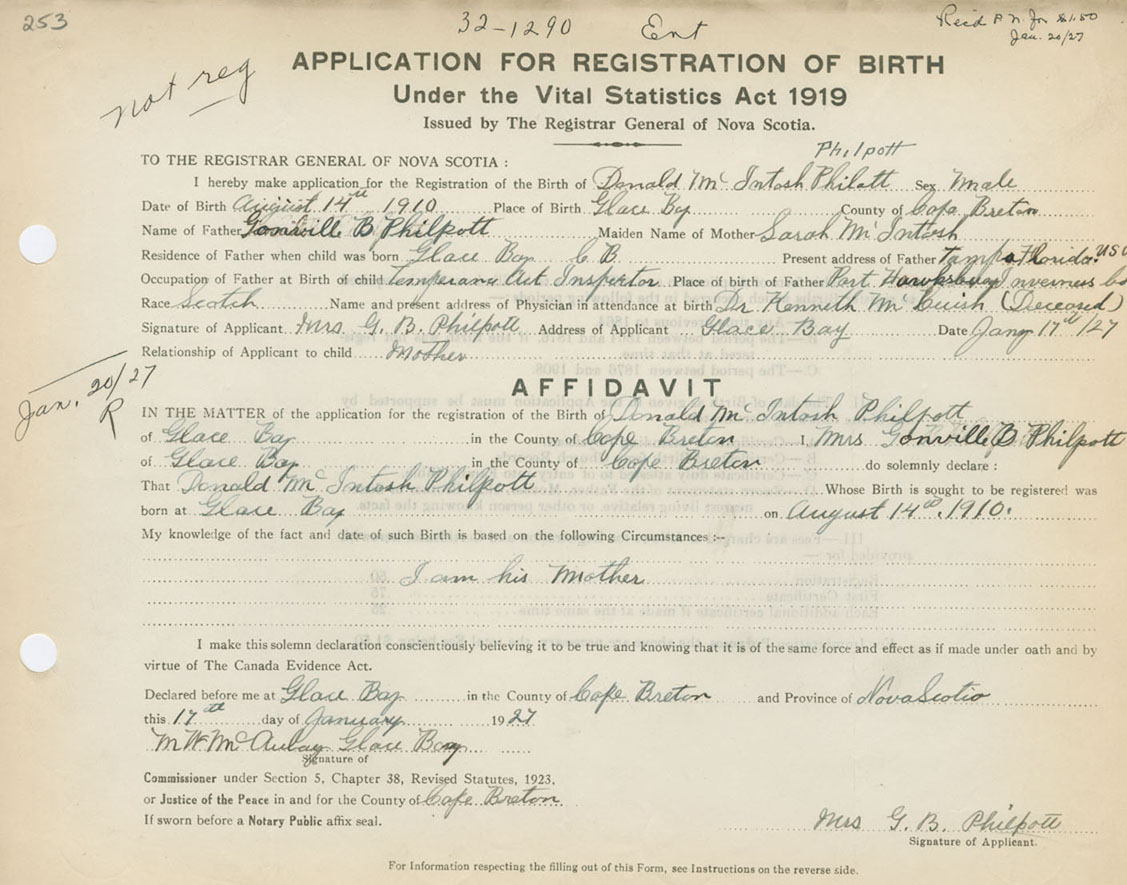 253
32-1290 Ent
Recd P. N. for $1.50
Jan. 20/27
not reg
APPLICATION FOR REGISTRATION OF BIRTH
Under the Vital Statistics Act 1919
Issued by The Registrar General of Nova Scotia.
Philpott
TO THE REGISTRAR GENERAL OF NOVA SCOTIA :
I hereby make application for the Registration of the Birth of Donald Mc Intosh Philott Sex Male
Date of Birth August 14th 1910 Place of Birth Glace Bay County of Cape Breton
Name of Father Gonville B Philpott Maiden Name of Mother Sarah Mc Intosh
Residence of Father when child was born Glace Bay C B Present address of Father Tampa Florida USA
Occupation of Father at Birth of child Temperance Act Inspector Place of birth of Father Port Hawksbury Inverness Co
Race Scotch Name and present address of Physician in attendance at birth Dr Kenneth Mc Cuish (Deceased)
Signature of Applicant Mrs. G. B. Philpott Address of Applicant Glace Bay Date Jany 17th/27
Relationship of Applicant to child Mother
Jan. 20/27
R
AFFIDAVIT
IN THE MATTER of the application for the registration of the Birth of Donald Mc Intosh Philpott
of Glace Bay in the County of Cape Breton I Mrs Gonville B Philpott
of Glace Bay in the County of Cape Breton do solemnly declare :
That Donald Mc Intosh Philpott Whose Birth is sought to be registered was
born at Glace Bay on August 14th, 1910.
My knowledge of the fact and date of such Birth is based on the following Circumstances :--
I am his Mother
I make this solemn declaration conscientiously believing it to be true and knowing that it is of the same force and effect as if made under oath and by
virtue of The Canada Evidence Act.
Declared before me at Glace Bay in the County of Cape Breton and Province of Nova Scotia
this 17th day of January 1927
M W McAulay Glace Bay
Signature of
Commissioner under Section 5, Chapter 38, Revised Statutes, 1923.
or Justice of the Peace in and for the County of Cape Breton
If sworn before a Notary Public affix seal.
Mrs G. B. Philpott
Signature of Applicant.
For Information respecting the filling out of this Form, see Instructions on the reverse side.